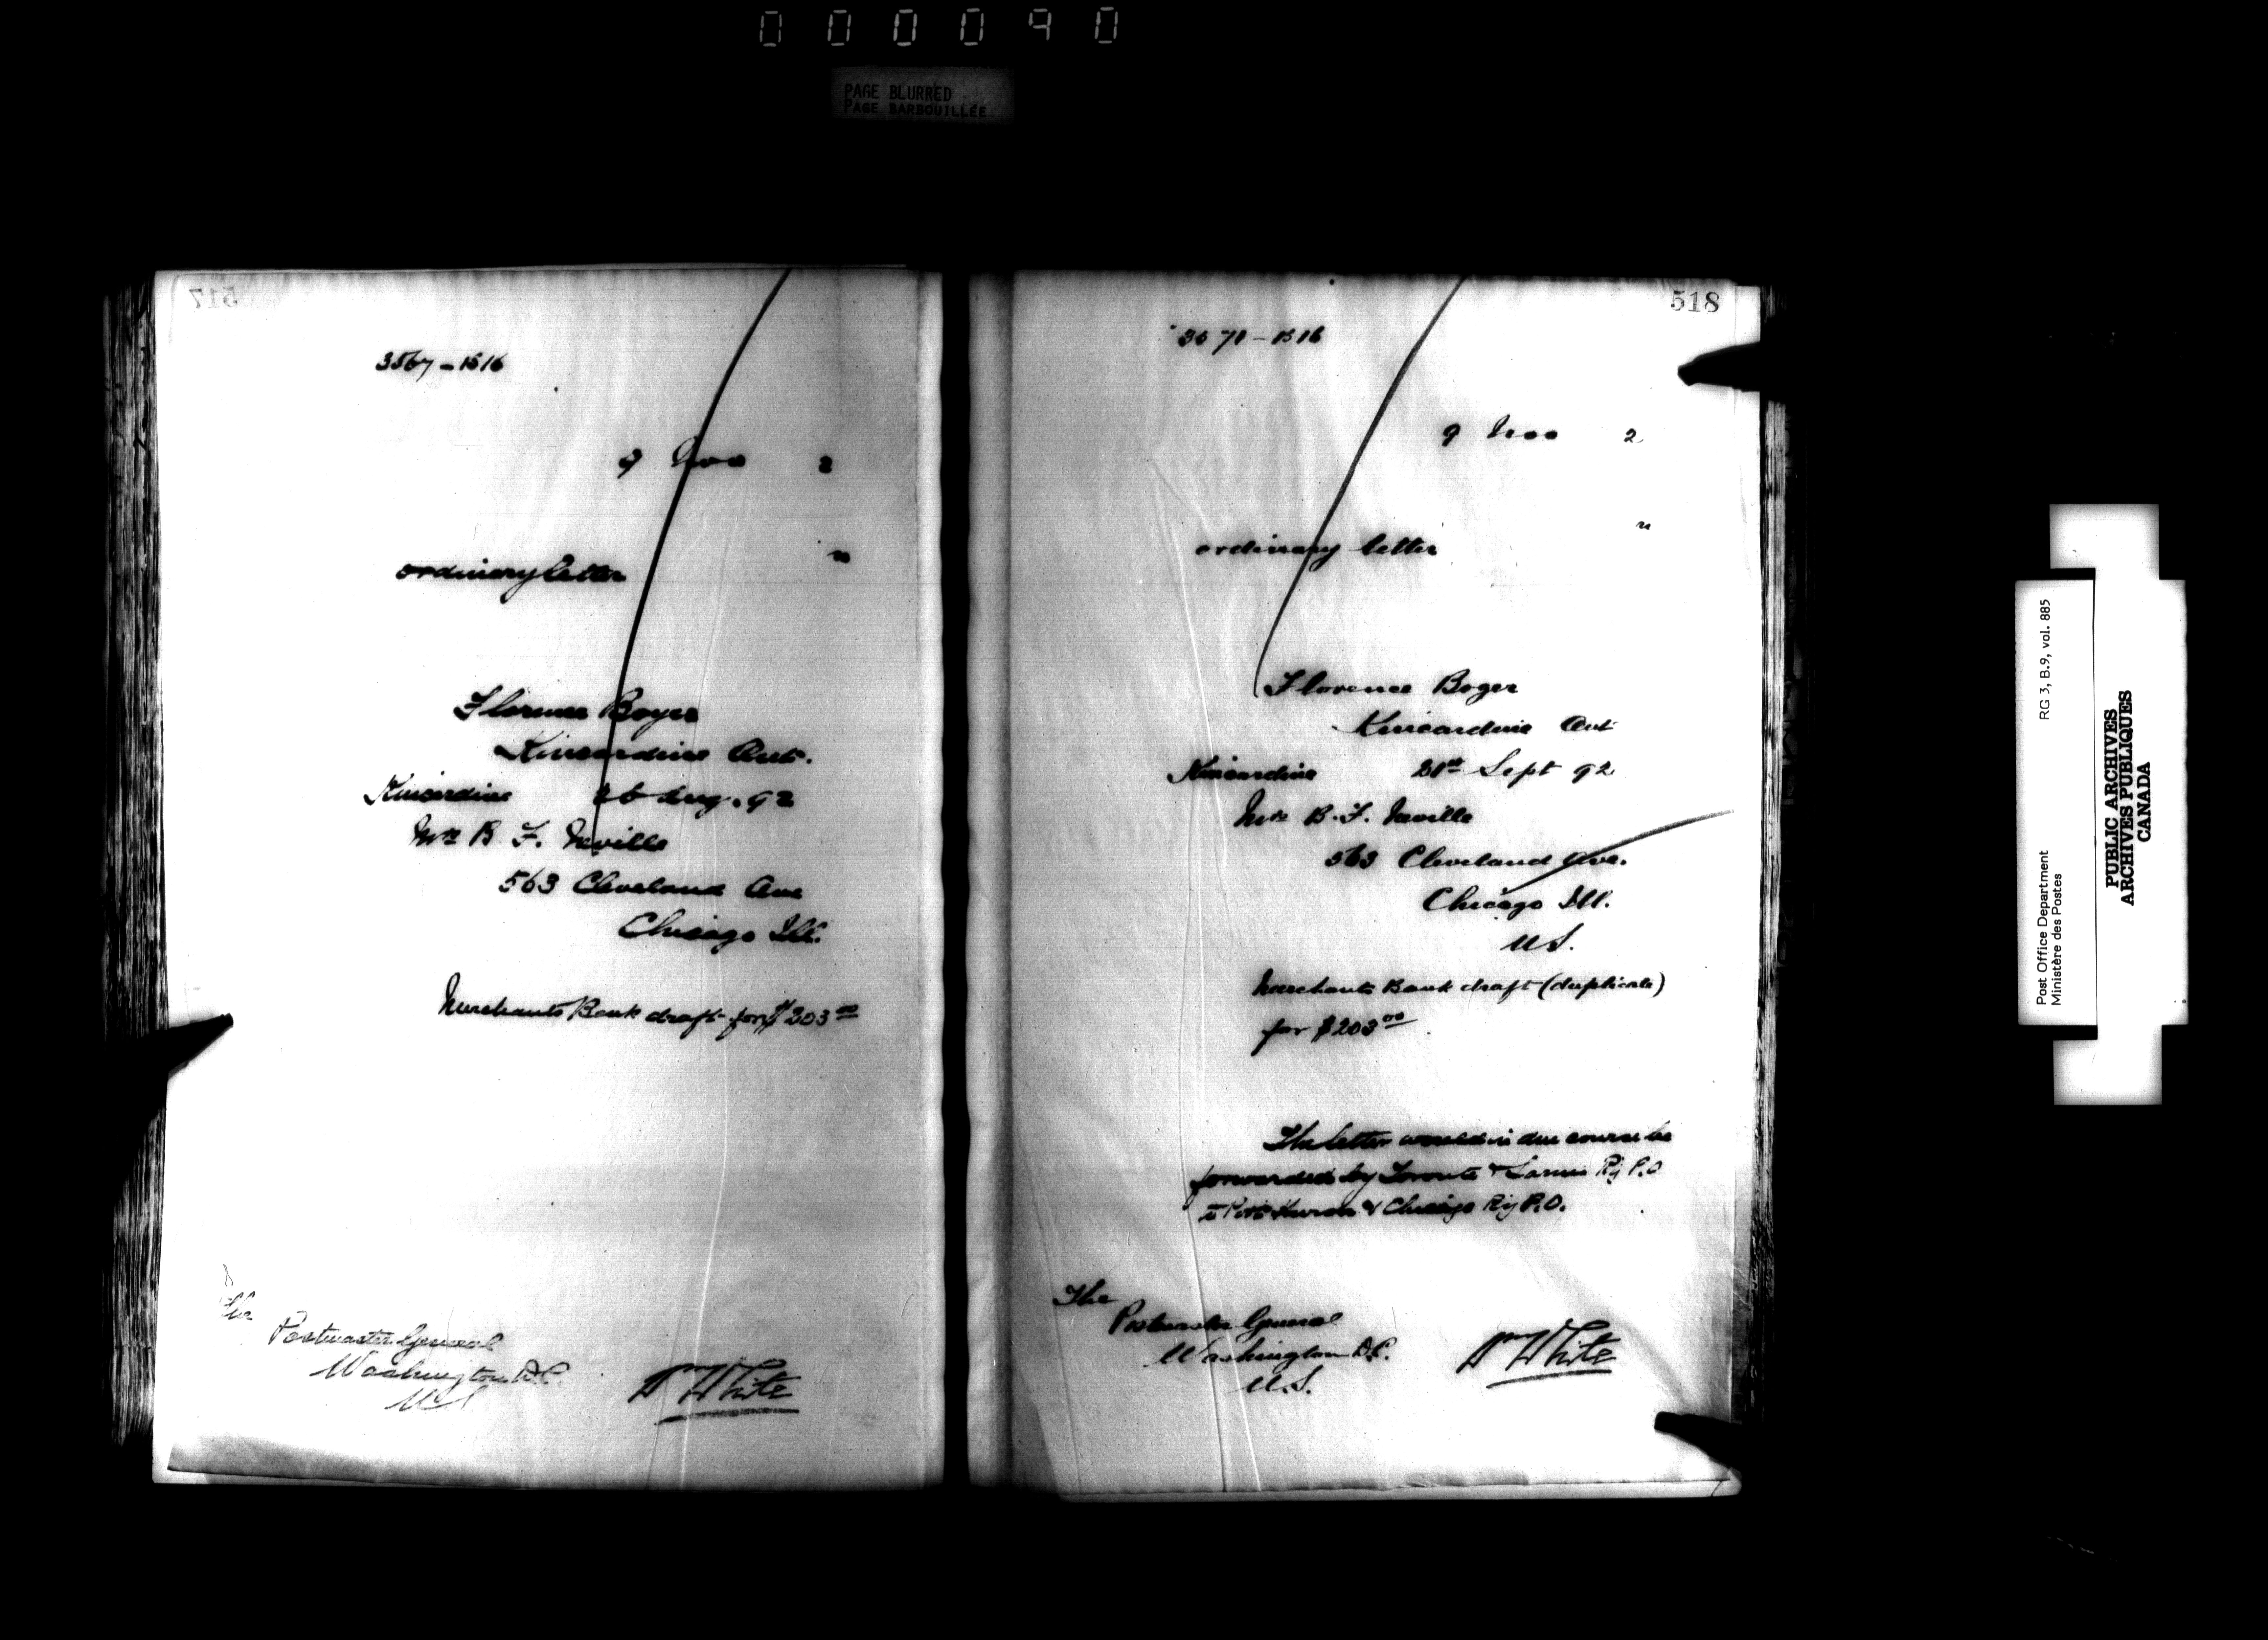 000090
PAGE BLURRED
PAGE BARBOUILLÉE
517
3567-1516
9 Nov 2
"
ordinary letter
Florence Boyer
Kincardine Ont.
Kincardine 26 Aug. 92
Mrs B. F. Neville
563 Cleveland Ave
Chicago Ill.
Merchants Bank draft for $203 00
The
Postmaster General
Washington D.C.
U.S.
W White
518
3571-1516
9 Nov 2
"
ordinary letter
Florence Boyer
Kincardine Ont
Kincardine 21st Sept 92
Mrs B. F. Neville
563 Cleveland Ave.
Chicago Ill.
U.S.
Merchants Bank draft (duplicate)
for $203 00
The letter would in due course be
forwarded by Toronto & Sarnia Ry P.O
to Port Huron & Chicago Ry P.O.
The
Postmaster General
Washington D.C.
U.S.
W White
Post Office Department RG 3, B.9, vol. 885
Ministère des Postes
PUBLIC ARCHIVES
ARCHIVES PUBLIQUES
CANADA